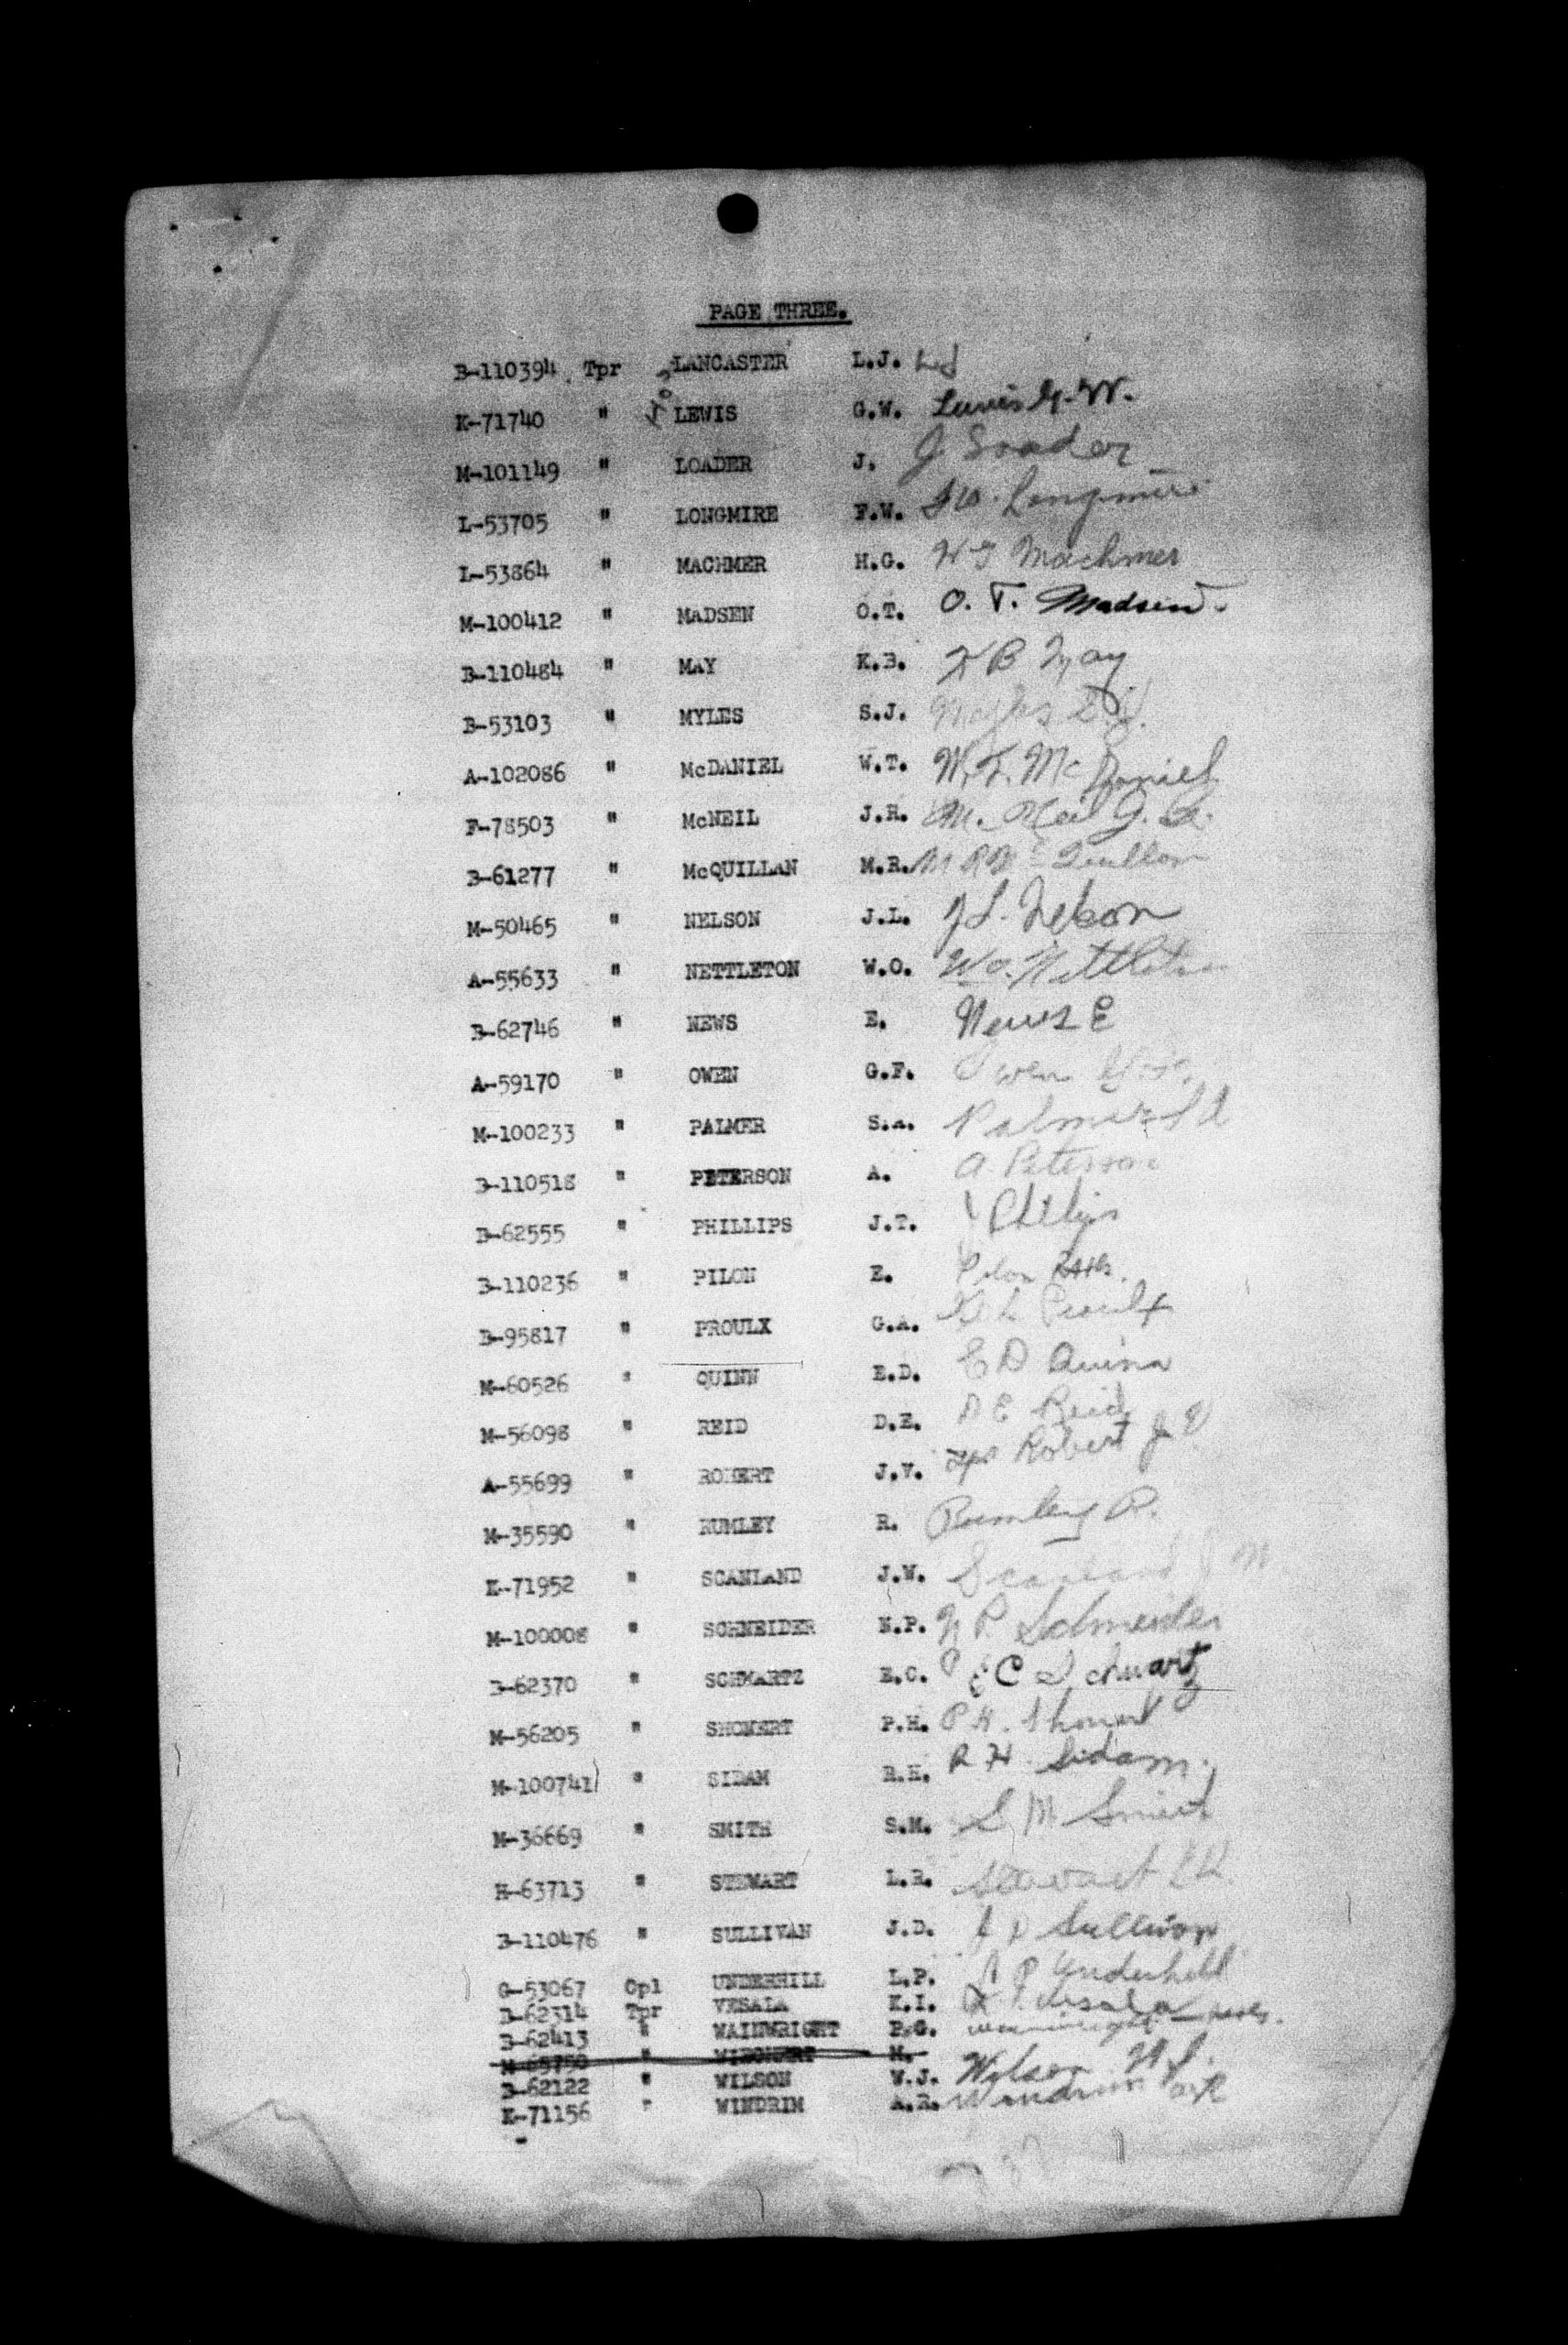 PAGE THREE.
B-110394 Tpr LANCASTER L.J.
K-71740 " LEWIS G.W. Lewis G.W.
M-101149 " LOADER J. J. Loader
L-53705 " LONGMIRE F.W. F.W. Longmire
L-53864 " MACHMER H.G. H G Machmer
M-100412 " MADSEN O.T. O. T. Madsen.
B-110484 " MAY K.B. K B May
B-53103 " MYLES S.J. Myles S.J.
A-102086 " McDANIEL W.T. W.T. McDaniel
F-78503 " McNEIL J.R. McNeil J. R.
B-61277 " McQUILLAN M.R. M R McQuillan
M-50465 " NELSON J.L. J L. Nelson
A-55633 " NETTLETON W.O. W.O. Nettleton
B-62746 " NEWS E. News E
A-59170 " OWEN G.F. Owen G.F.
M-100233 " PALMER S.A. Palmer S A
B-110518 " PETERSON A. A. Peterson
B-62555 " PHILLIPS J.T. Phillips
B-110236 " PILON E. Pilon
B-95817 " PROULX G.A. Proulx
M-60526 " QUINN E.D. E D Quinn
M-56098 " REID D.E. D E Reid
A-55699 " ROBERT J.V. Tpr Robert J V
M-35590 " RUMLEY R. Rumley R.
K-71952 " SCANLAND J.W. Scanland J W
M-100008 " SCHNEIDER N.P. N P Schneider
B-62370 " SCHWARTZ E.C. E C Schwartz
M-56205 " SHOMERT P.H. P H. Shomert
M-100741 " SIDAM R.H. R H. Sidam.
M-36669 " SMITH S.M. S M Smith
H-63713 " STEWART L.R. Stewart L R
B-110476 " SULLIVAN J.D. J D Sullivan
G-53067 Cpl UNDERHILL L.P. L P Underhill
B-62314 Tpr VESALA K.I. K I Vesala
B-62413 " WAINWRIGHT P.G. Wainwright
" M.
B-62122 " WILSON W.J. Wilson W.J.
K-71156 " WINDRIM A.R. Windrim A R